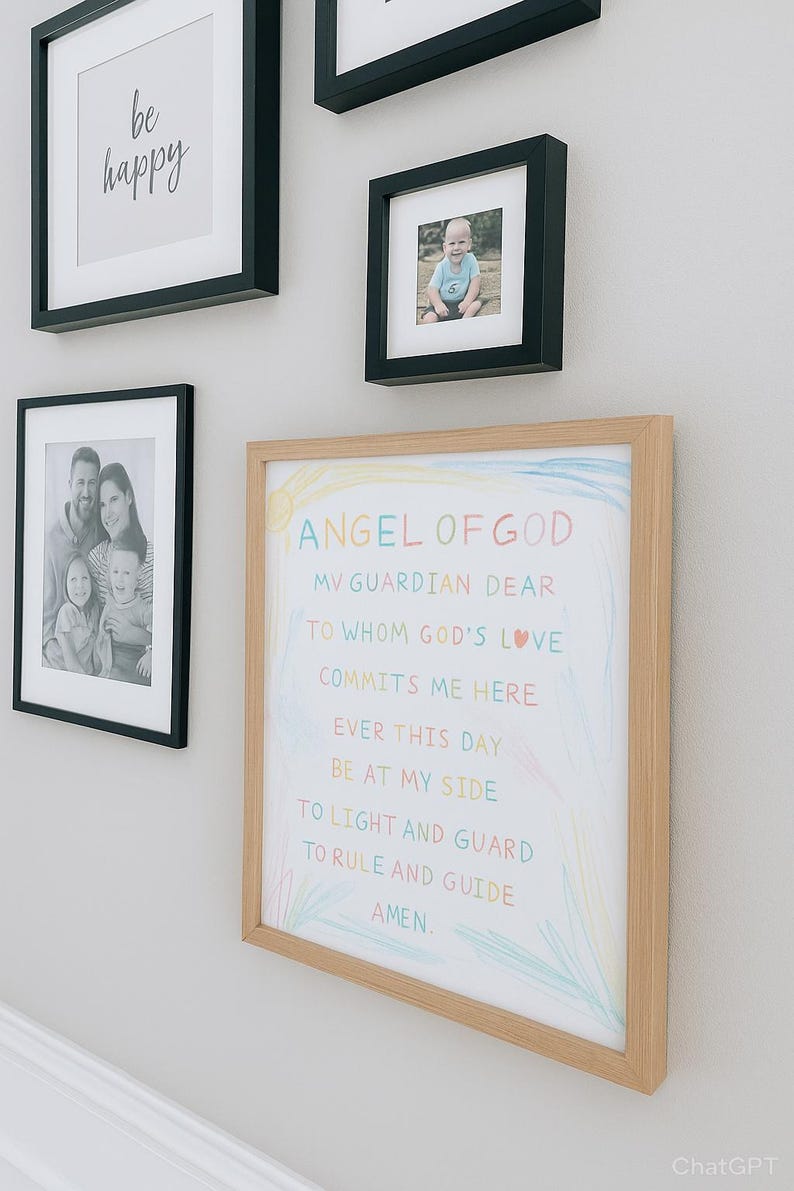 be
happy
6
ANGEL OF GOD
MV GUARDIAN DEAR
TO WHOM GOD'S L♥VE
COMMITS ME HERE
EVER THIS DAY
BE AT MY SIDE
TO LIGHT AND GUARD
TO RULE AND GUIDE
AMEN.
ChatGPT